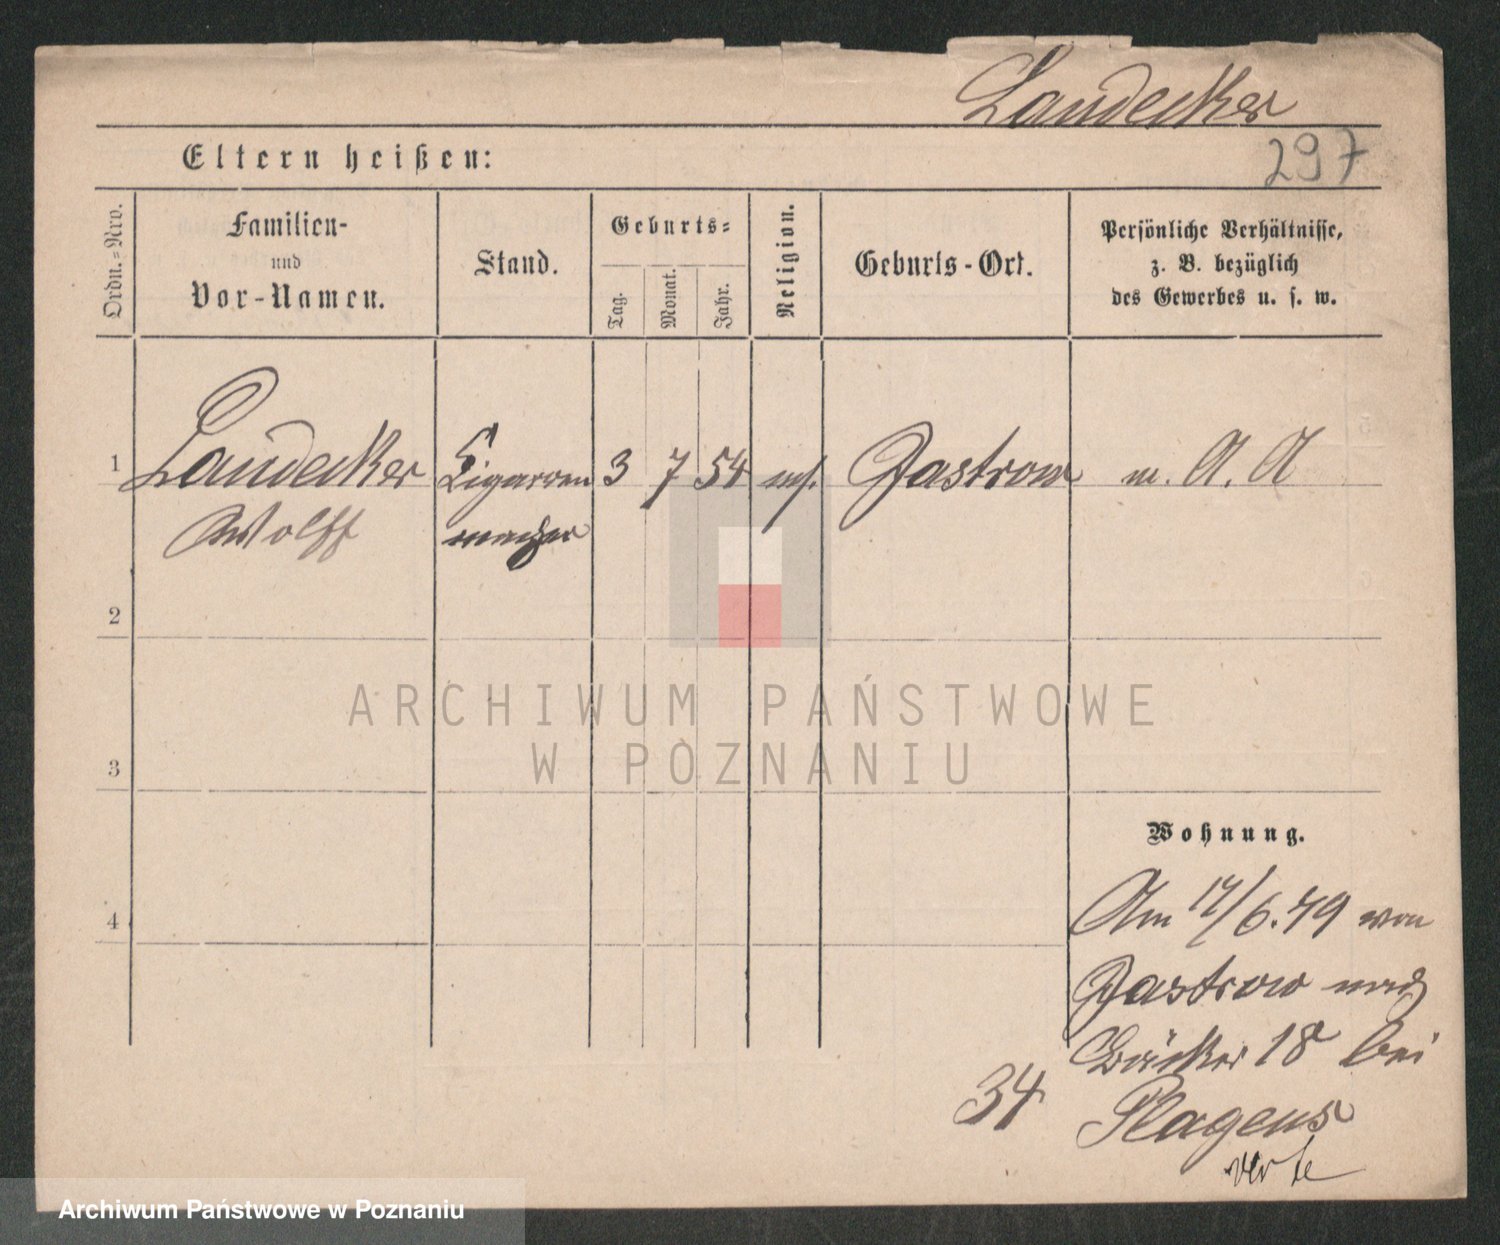 Landecker
297
Eltern heißen:
Ordn.-Nro.
Familien-
und
Vor-Namen.
Stand.
Geburts-
Tag.
Monat.
Jahr.
Religion.
Geburts-Ort.
Persönliche Verhältnisse,
z. B. bezüglich
des Gewerbes u. s. w.
1 Landecker Cigarren 3 7 54 Jastrow m. A. A
Wolff macher
2
3
4
Wohnung.
Am 17/6.79 von
Jastrow nach
Bäcker 18 bei
Plagens
34
verte
ARCHIWUM PAŃSTWOWE
W POZNANIU
Archiwum Państwowe w Poznaniu